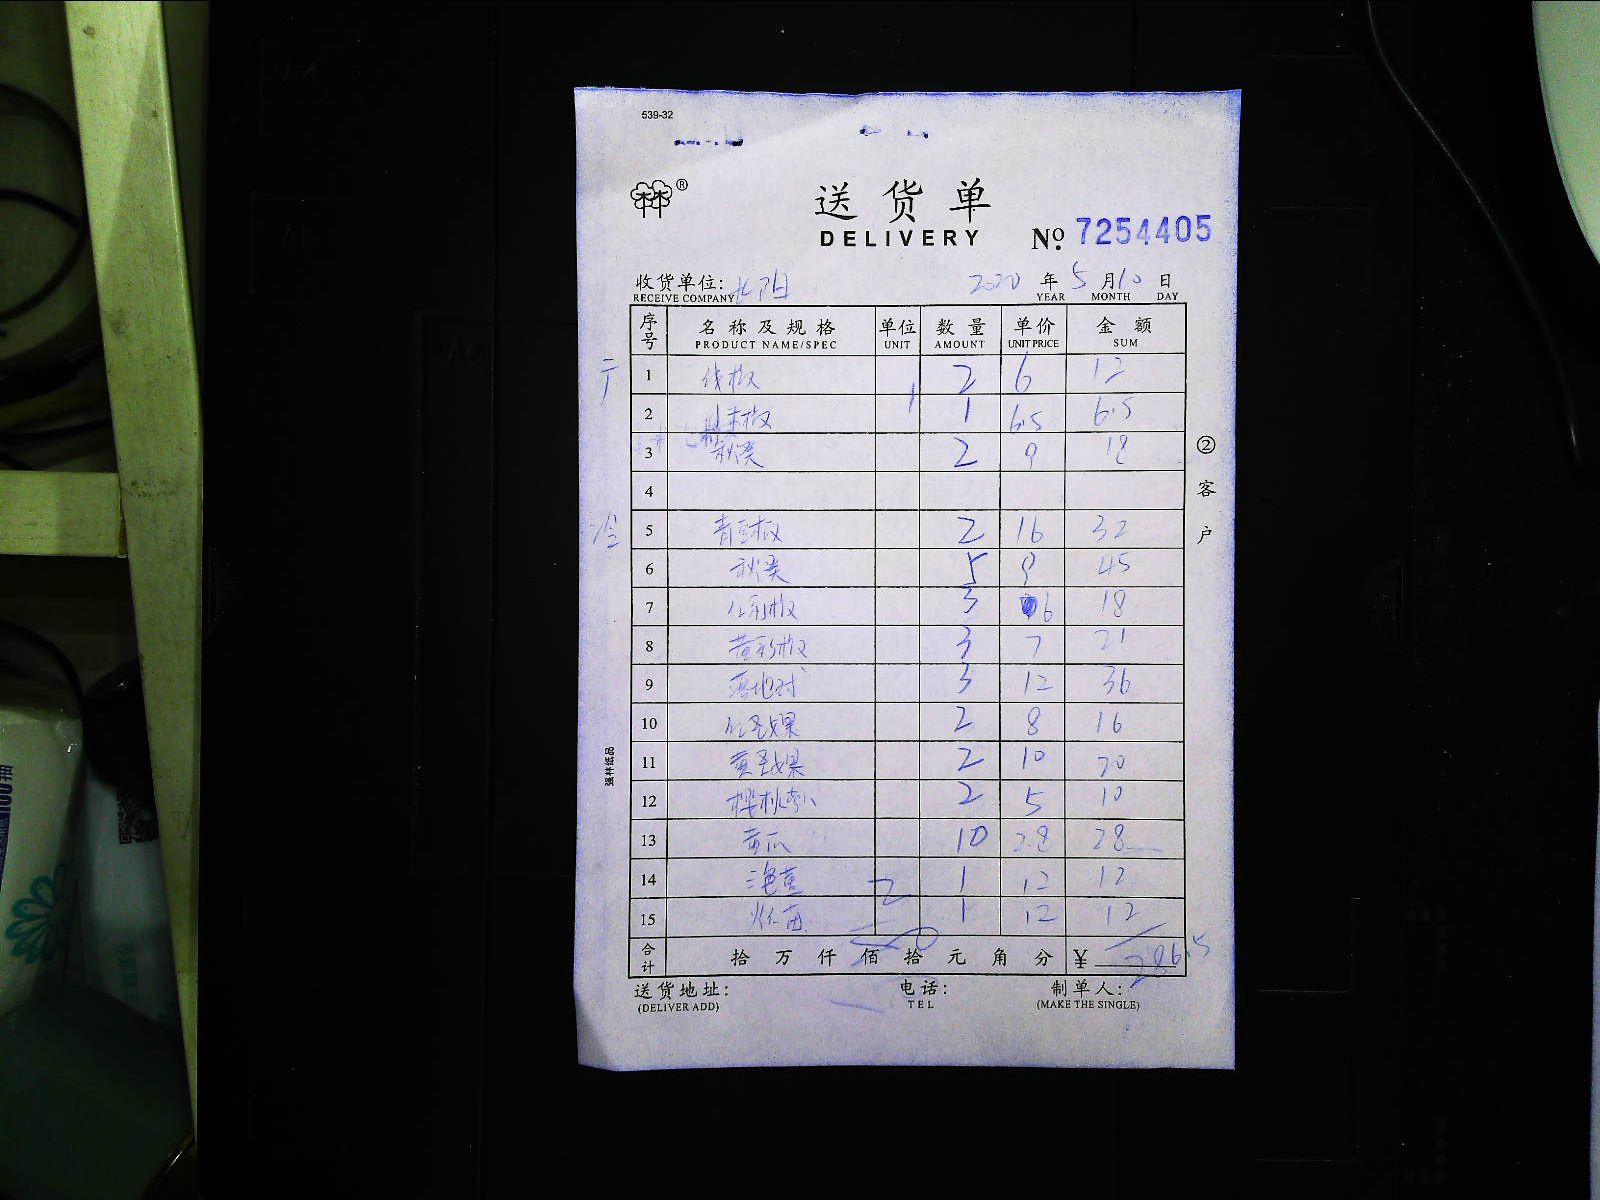 539-32
®
送货单
DELIVERY
No. 7254405
收货单位:
RECEIVE COMPANY
2020 年 5 月 10 日
YEAR MONTH DAY
序号 名称及规格 单位 数量 单价 金额
PRODUCT NAME/SPEC UNIT AMOUNT UNIT PRICE SUM
1 线椒 2 6 12
2 1 6.5 6.5
3 秋葵 2 9 18
4
5 2 16 32
6 秋葵 5 9 45
7 红彩椒 3 6 18
8 黄彩椒 3 7 21
9 3 12 36
10 红圣女果 2 8 16
11 黄圣女果 2 10 20
12 2 5 10
13 黄瓜 10 2.8 28
14 1 12 12
15 1 12 12
合计 拾 万 仟 佰 拾 元 角 分 ¥ 286.5
送货地址:
(DELIVER ADD)
电话:
TEL
制单人:
(MAKE THE SINGLE)
②客户
强林纸品